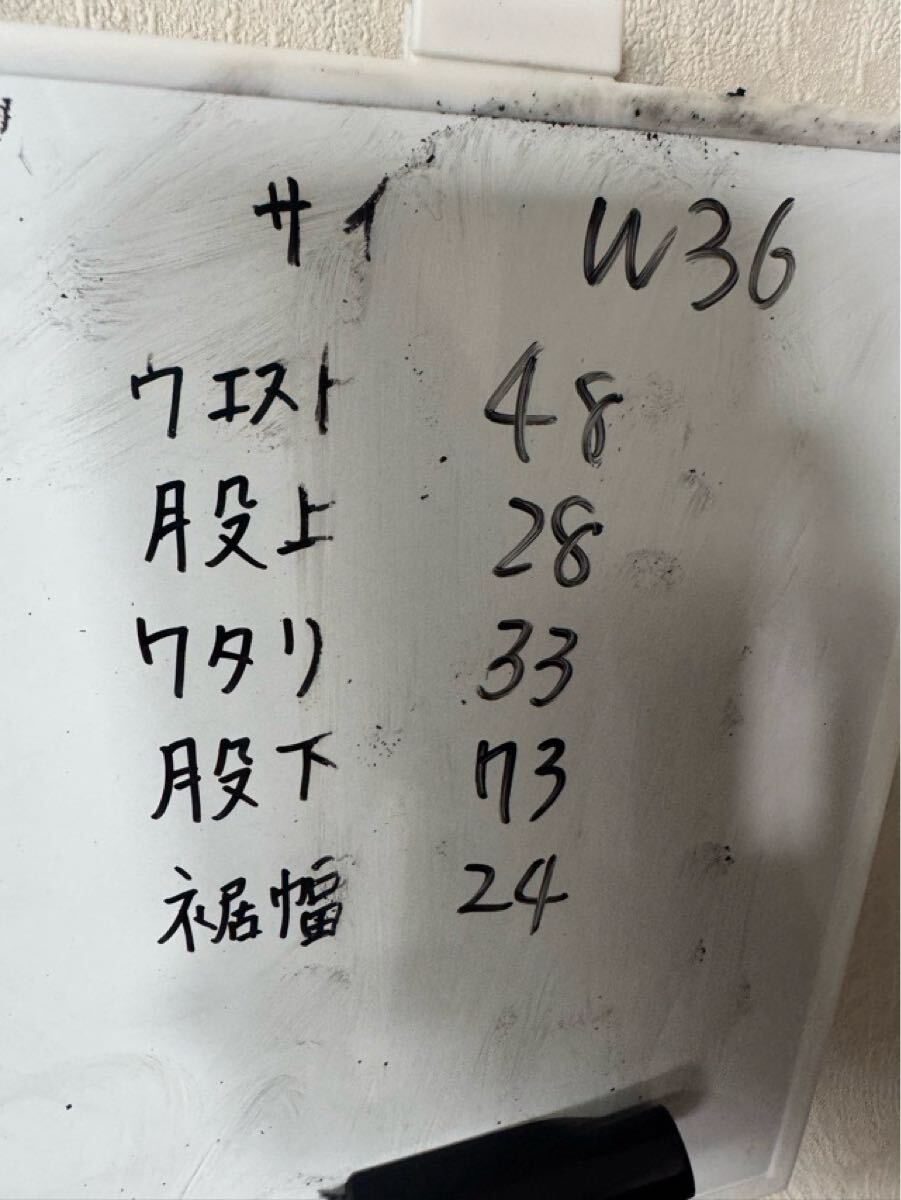 サイ W36
ウエスト 48
股上 28
ワタリ 33
股下 73
裾幅 24